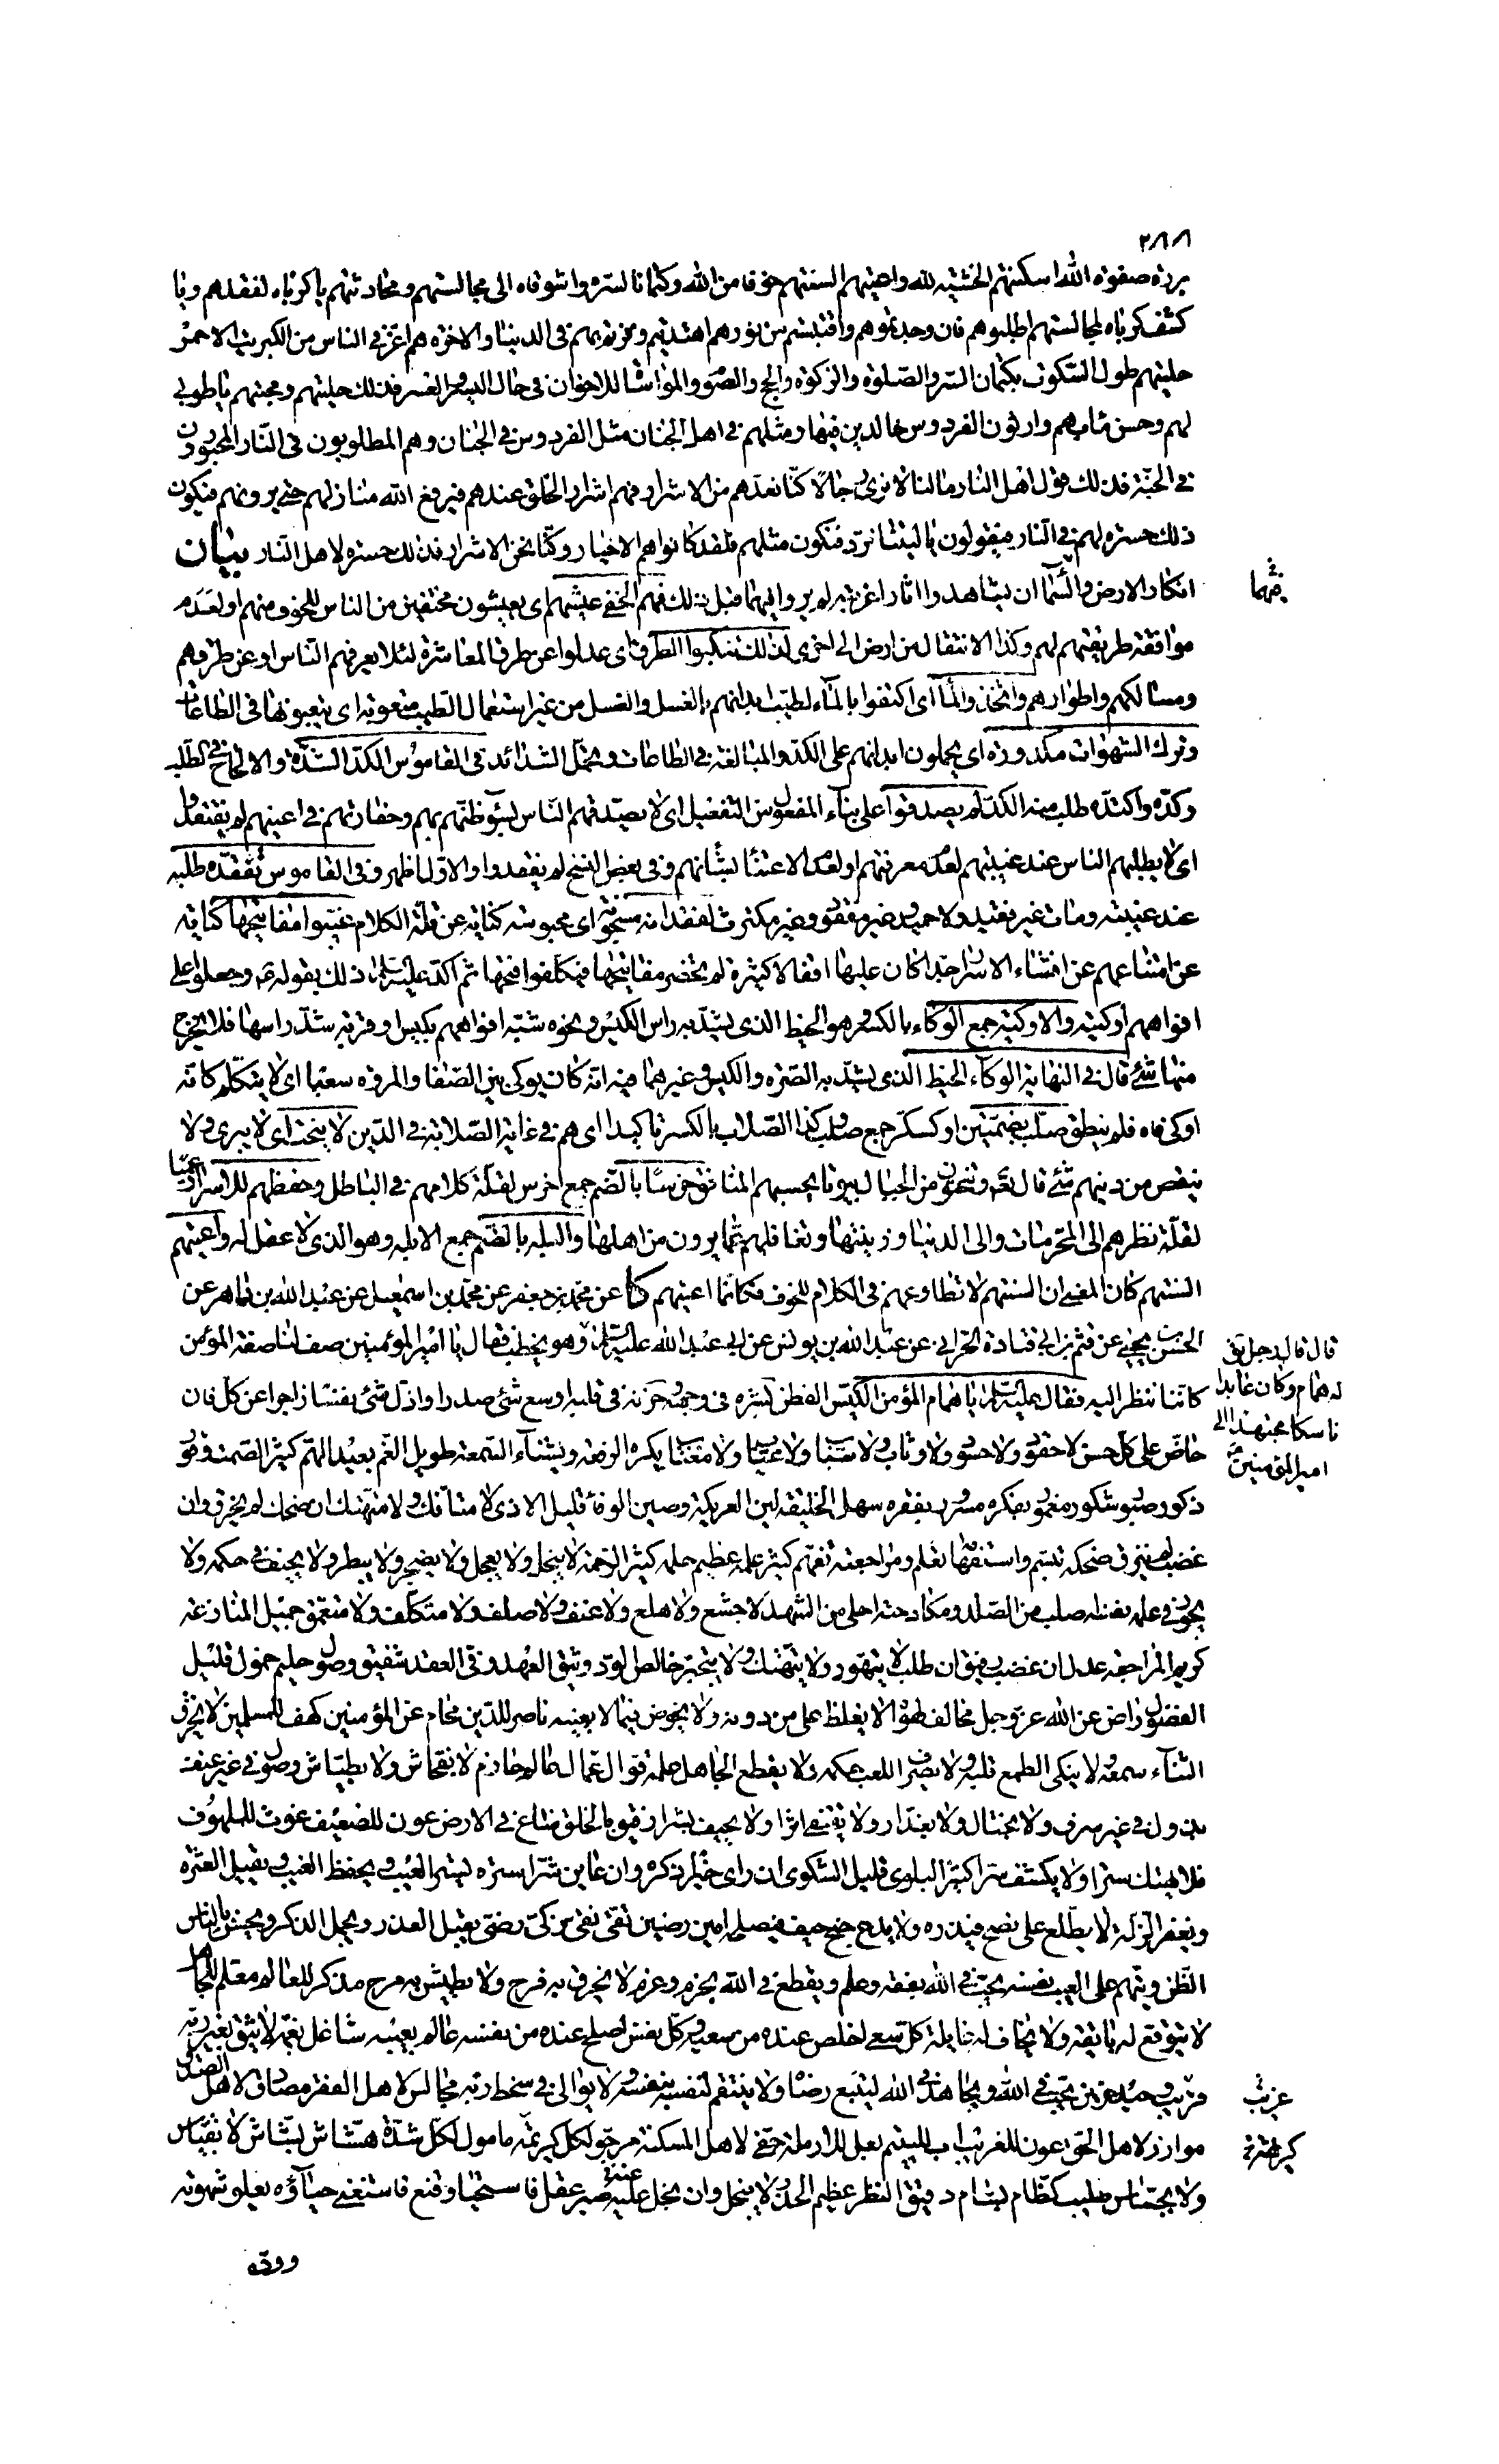 ٢٨٨
بررة صفوة الله اسكنتهم الخشية لله واعيتهم السنتهم خوفا من الله وكتمانا لسره واشوقاه الى مجالستهم ومحادثتهم يا كرباه لفقدهم ويا
كشف كرباه لمجالستهم اطلبوهم فان وجدتموهم واقتبستم من نورهم اهتديتم وفزتم بهم فى الدنيا والاخرة هم اعز فى الناس من الكبريت الاحمر
حليتهم طول السكوت بكتمان السر والصلوة والزكوة والحج والصوم والمواساة للاخوان فى حال اليسر والعسر فذلك حليتهم ومحبتهم يا طوبى
لهم وحسن مآب هم وارثون الفردوس خالدين فيها ومثلهم فى اهل الجنان مثل الفردوس فى الجنان وهم المطلوبون فى النار المحبورون
فى الجنة فذلك قول اهل النار ما لنا لا نرى رجالا كنا نعدهم من الاشرار فهم اشرار الخلق عندهم فيرفع الله منازلهم حتى يرونهم فيكون
ذلك حسرة لهم فى النار فيقولون يا ليتنا نرد فنكون مثلهم فلقد كانوا هم الاخيار وكنا نحن الاشرار فذلك حسرة لاهل النار بيان
انكار الارض والسماء ان يشاهدوا اثارا غريبة لم يروا فيهما قبل ذلك فهم الخفى عيشهم اى يعيشون مختفين من الناس للخوف منهم او لعدم
فيهما
موافقة طريقتهم لهم وكذا الانتقال من ارض الى اخرى لذلك تنكبوا الطرق اى عدلوا عن طرق المعاشرة لئلا يعرفهم الناس او عن طرقهم
ومسالكهم واطوارهم واتخذوا الماء اى اكتفوا بالماء لطيب ابدانهم بالغسل والغسل من غير استعمال الطيب متعوبة اى يتعبونها فى الطاعات
وترك الشهوات مكدودة اى يحملون ابدانهم على الكد والمبالغة فى الطاعات وتحمل الشدائد فى القاموس الكد الشدة والالحاح فى الطلب
وكده واكتده طلب منه الكد لم يصدقوا على بناء المفعول من التفعيل اى لا يصدقهم الناس لسوء ظنهم بهم وحقارتهم فى اعينهم لم يفتقدوا
اى لا يطلبهم الناس عند غيبتهم لعدم معرفتهم او لعدم الاعتناء بشانهم وفى بعض النسخ لم يفقدوا والاول اظهر وفى القاموس تفقده طلبه
عند غيبته ومات غير فقيد ولا حميد وغير مفقود وغير مكترث لفقدانه مسجونة اى محبوسة كناية عن قلة الكلام غيبوا مفاتيحها كناية
عن امتناعهم عن افشاء الاسرار جدا كان عليها اقفالا كثيرة لم يحضر مفاتيحها فيكلفوا فتحها ثم اكد عليه السلام ذلك بقوله وجعلوا على
افواههم اوكية والاوكية جمع الوكاء بالكسر وهو الخيط الذى يشد به راس الكيس ونحوه شبه افواههم بكيس او قربة شد راسها فلا يخرج
منها شئ قال فى النهاية الوكاء الخيط الذى يشد به الصرة والكيس وغيرهما منه انه كان يوكى بين الصفا والمروة سعيا اى لا يتكلم كانه
اوكى فاه فلم ينطق صلب بضمتين او كسكر جمع صلب وكذا الصلاب بالكسر تاكيدا اى هم فى غاية الصلابة فى الدين لا ينحت اى لا يبرى ولا
ينقص من دينهم شئ قال تعالى وتنحتون من الجبال بيوتا يحسبهم المنافق خرسا بالضم جمع اخرس لقلة كلامهم فى الباطل وحفظهم للاسرار عميا
لقلة نظرهم الى المحرمات والى الدنيا وزينتها وتغافلهم عما يرون من اهلها والبله بالضم جمع الابله وهو الذى لا عقل له واعيتهم
السنتهم كان المعنى ان السنتهم لا تطاوعهم فى الكلام للخوف فكانما اعيتهم كا عن محمد بن جعفر عن محمد بن اسمعيل عن عبد الله بن داهر عن
الحسن بن يحيى عن قثم بن ابى قتادة الحرانى عن عبد الله بن يونس عن ابى عبد الله عليه السلام وهو يخطب فقال يا امير المؤمنين صف لنا صفة المؤمن
قال قام رجل يق
له همام وكان عابدا
ناسكا مجتهدا الى
امير المؤمنين
كاننا ننظر اليه فقال عليه السلام يا همام المؤمن الكيس الفطن بشره فى وجهه وحزنه فى قلبه اوسع شئ صدرا واذل شئ نفسا زاجر عن كل فان
حاض على كل حسن لا حقود ولا حسود ولا وثاب ولا سباب ولا عياب ولا مغتاب يكره الرفعة ويشنا السمعة طويل الغم بعيد الهم كثير الصمت وقور
ذكور صبور شكور مغموم بفكره مسرور بفقره سهل الخليقة لين العريكة رصين الوفاء قليل الاذى لا متافك ولا متهتك ان ضحك لم يخرق وان
غضب لم ينزق ضحكه تبسم واستفهامه تعلم ومراجعته تفهم كثير علمه عظيم حلمه كثير الرحمة لا يبخل ولا يعجل ولا يضجر ولا يبطر ولا يحيف فى حكمه ولا
يجور فى علمه نفسه اصلب من الصلد ومكادحته احلى من الشهد لا جشع ولا هلع ولا عنف ولا صلف ولا متكلف ولا متعمق جميل المنازعة
كريم المراجعة عدل ان غضب رفيق ان طلب لا يتهور ولا يتهتك ولا يتجبر خالص الود وثيق العهد وفى العقد شفيق وصول حليم خمول قليل
الفضول راض عن الله عز وجل مخالف لهواه لا يغلظ على من دونه ولا يخوض فيما لا يعنيه ناصر للدين محام عن المؤمنين كهف للمسلمين لا يخرق
الثناء سمعه ولا ينكى الطمع قلبه ولا يصرف اللعب حكمه ولا يقطع الجاهل علمه قوال عمال عالم حازم لا بفحاش ولا بطياش وصول فى غير عنف
بذول فى غير سرف ولا بختال ولا بغدار ولا يقتفى اثرا ولا يحيف بشرا رفيق بالخلق ساع فى الارض عون للضعيف غوث للملهوف
فلا يهتك سترا ولا يكشف سرا كثير البلوى قليل الشكوى ان راى خيرا ذكره وان عاين شرا ستره يستر العيب ويحفظ الغيب ويقيل العثرة
ويغفر الزلة لا يطلع على نصح فيذره ولا يدع جنح حيف فيصلحه امين رصين تقى نقى زكى رضى يقبل العذر ويجمل الذكر ويحسن بالناس
الظن ويتهم على العيب نفسه يحب فى الله بفقه وعلم ويقطع فى الله بحزم وعزم لا يخرق به فرح ولا يطيش به مرح مذكر للعالم معلم للجاهل
لا يتوقع له بائقة ولا يخاف له غائلة كل سعى اخلص عنده من سعيه وكل نفس اصلح عنده من نفسه عالم بعيبه شاغل بغمه لا يثق بغير ربه
قريب وحيد حزين يحب فى الله ويجاهد فى الله ليتبع رضاه ولا ينتقم لنفسه بنفسه ولا يوالى فى سخط ربه مجالس لاهل الفقر مصادق لاهل الصدق
غريب
موازر لاهل الحق عون للغريب اب لليتيم بعل للارملة حفى لاهل المسكنة مرجو لكل كريهة مامول لكل شدة هشاش بشاش لا بعباس
ولا بجساس صليب كظام بسام دقيق النظر عظيم الحذر لا يبخل وان بخل عليه صبر عقل فاستحيا وقنع فاستغنى حياؤه يعلو شهوته
ووده